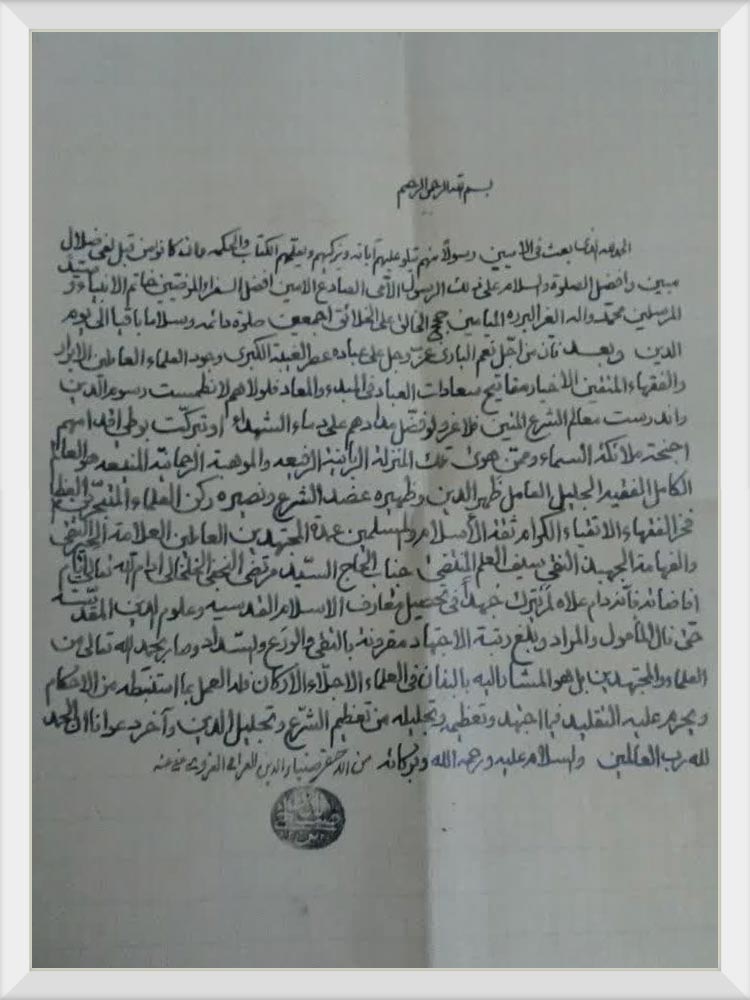 بسم الله الرحمن الرحیم
الحمد لله الذی بعث فی الامیین رسولاً منهم یتلو علیهم آیاته ویزکیهم ویعلّمهم الکتاب والحکمه وانه کانوا من قبل لفی ضلال
مبین وافضل الصلوة والسلام علی ذلک الرسول الامّی الصادع الامین افضل السفراء المرضیّین خاتم الانبیاء و سیّد
المرسلین محمّد واله الغر البررة المیامین حجج الخالق علی الخلائق اجمعین صلوة دائمه وسلاما باقیا الی یوم
الدین وبعد فان من اجلّ نعم الباری عزّ وجل علی عباده عصر الغیبة الکبری وجود العلماء العاملین الابرار
والفقهاء المتقین الاخیار مفاتیح سعادات العباد فی المبدء والمعاد فلولاهم لانطمست رسوم الدین
واندرست معالم الشرع المبین فلا غرو لو فضّل مدادهم علی دماء الشهداء او تبرکت بوطی اقدامهم
اجنحة ملائکة السماء وممن هوی تلک المنزلة الربانیة الرفیعه والموهبة الرحمانیة المنیعه هو العالم
الکامل الفقیه الجلیل العامل ظهیر الدین وظهیره عضد الشرع ونصیره رکن العلماء المتبحرین العظام
فخر الفقهاء الاتقیاء الکرام ثقة الاسلام والمسلمین عمدة المجتهدین العاملین العلامة الحبر النقی
والفهامة الجهبذ التقی سیف العلم المنتضی جناب الحاج السیّد مرتضی النجفی الخلخالی ادام الله تعالی ایّام
افاضاته فانّه دام علاه لم یترک جهداً فی تحصیل معارف الاسلام القدسیه وعلوم الدین المقدّسة
حتّی نال المأمول والمراد وبلغ رتبة الاجتهاد مقرونة بالتقی والورع والسّداد وصار بحمد الله تعالی من
العلماء والمجتهدین بل هو المشار الیه بالبنان فی العلماء الاجلّاء الارکان فله العمل بما استنبطه من الاحکام
ویحرم علیه التقلید فیما اجتهد وتعظیمه وتجلیله من تعظیم الشرع وتجلیل الدین وآخر دعوانا ان الحمد
لله رب العالمین والسلام علیه ورحمة الله وبرکاته من ضیاء الدین العراقی الغروی عفی عنه